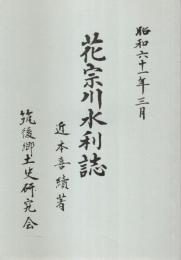 昭和六十一年三月
花宗川水利誌
近本喜續著
筑後郷土史研究会